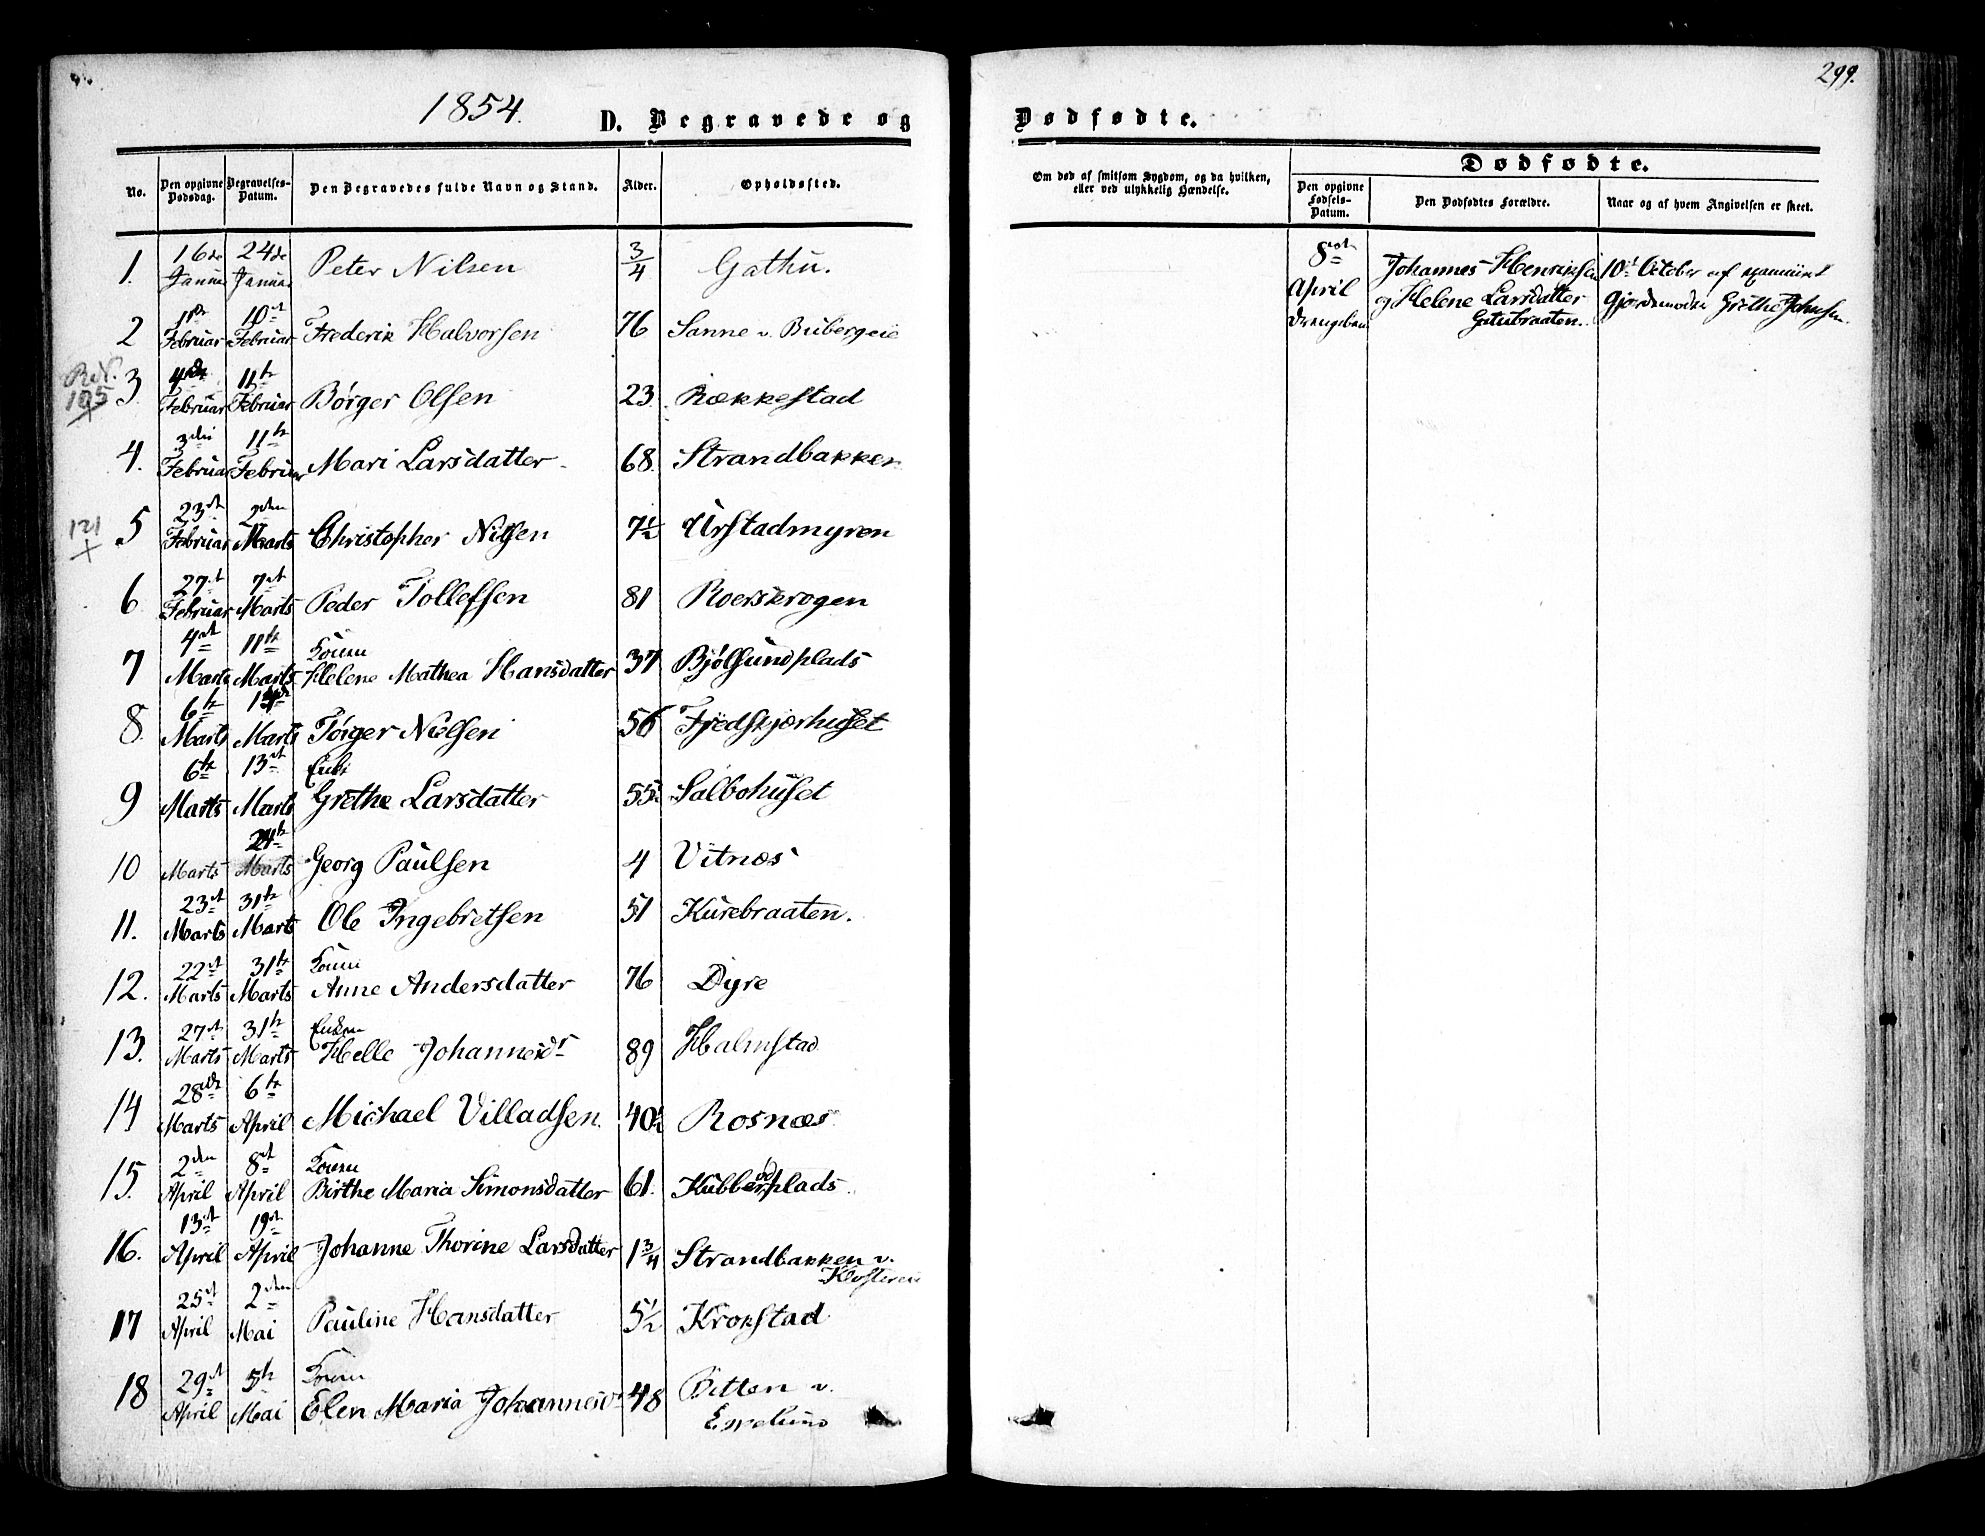 1854.
D. Begravede og
No.
Den opgivne Dødsdag.
Begravelses-Datum.
Den Begravedes fulde Navn og Stand.
Alder.
Opholdssted.
1. 16de Januar 24de Januar Peter Nilsen 3/4 Gathu.
2 Februar 10de Februar Frederik Halvorsen 76 Sanne v.
Rev. 105 3 Februar 11te Februar Børger Olsen 23 Rækkestad
4. 3die Februar 11te Februar Mari Larsdatter 68. Strandbakken
121 5 23de Februar 2den Marts Christopher Nilsen 7 1/2 Urstadmyren
6 27de Februar 7de Marts Peder Tollefsen 81 Roerskrogen
7 4de Marts 11te Marts Konen
Helene Mathea Hansdatter 37 Bjølsundplads
8. 6te Marts Marts Torger Nielsen 56 Fjedskjærhuset
9 6te Marts 13de Marts Enke
Grethe Larsdatter 55 Salbohuset
10 Marts 24te Marts Georg Paulsen 4 Vitnæs
11. 23de Marts 31te Marts Ole Ingebretsen 51 Kurebraaten.
12. 22de Marts 31te Marts Konen
Anne Andersdatter 76 Dyre
13. 27de Marts 31te Marts Enken
Helle Johannesdr 89 Halmstad
14 28de Marts 6te April Michael Villadsen. 40 1/2 Rosnæs
15. 2den April 8de April Konen
Birthe Maria Simonsdatter 61. Kubberødplads
16. 13de April 19de April Johanne Thorine Larsdatter 1 3/4 Strandbakken v.
17 25de April 2den Mai Pauline Hansdatter 5 1/2 Krokstad
18 29de April 5te Mai Konen
Elen Maria Johannesdr 48 Bitten v.
Espelund
299.
Dødfødte.
Om død af smitsom Sygdom, og da hvilken, eller ved ulykkelig Hændelse.
Dødfødte.
Den opgivne Fødsels-Datum.
Den Dødfødtes Forældre.
Naar og af hvem Angivelsen er skeet.
8de April Johannes Henriksen
og Helene Larsdatter
Gatubraaten.
10de October af examineret
Gjordemoder Grethe Johnsen.